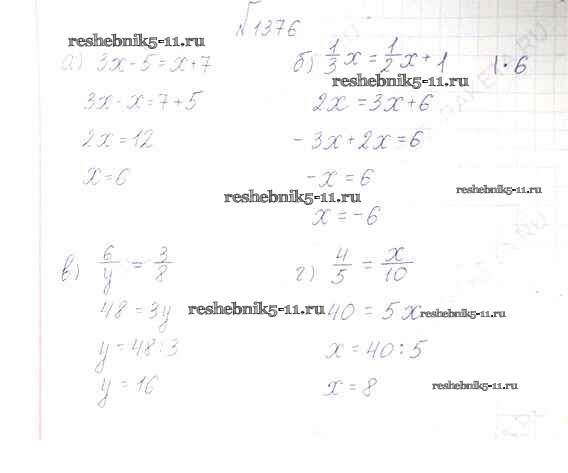 №1376
reshebnik5-11.ru
а) 3x-5=x+7
3x-x=7+5
2x=12
x=6
б) 1/3 x = 1/2 x + 1 |·6
2x=3x+6
-3x+2x=6
-x=6
reshebnik5-11.ru
reshebnik5-11.ru
x=-6
в) 6/y = 3/8
48=3y
y=48:3
y=16
г) 4/5 = x/10
reshebnik5-11.ru
40=5x
reshebnik5-11.ru
x=40:5
x=8
reshebnik5-11.ru